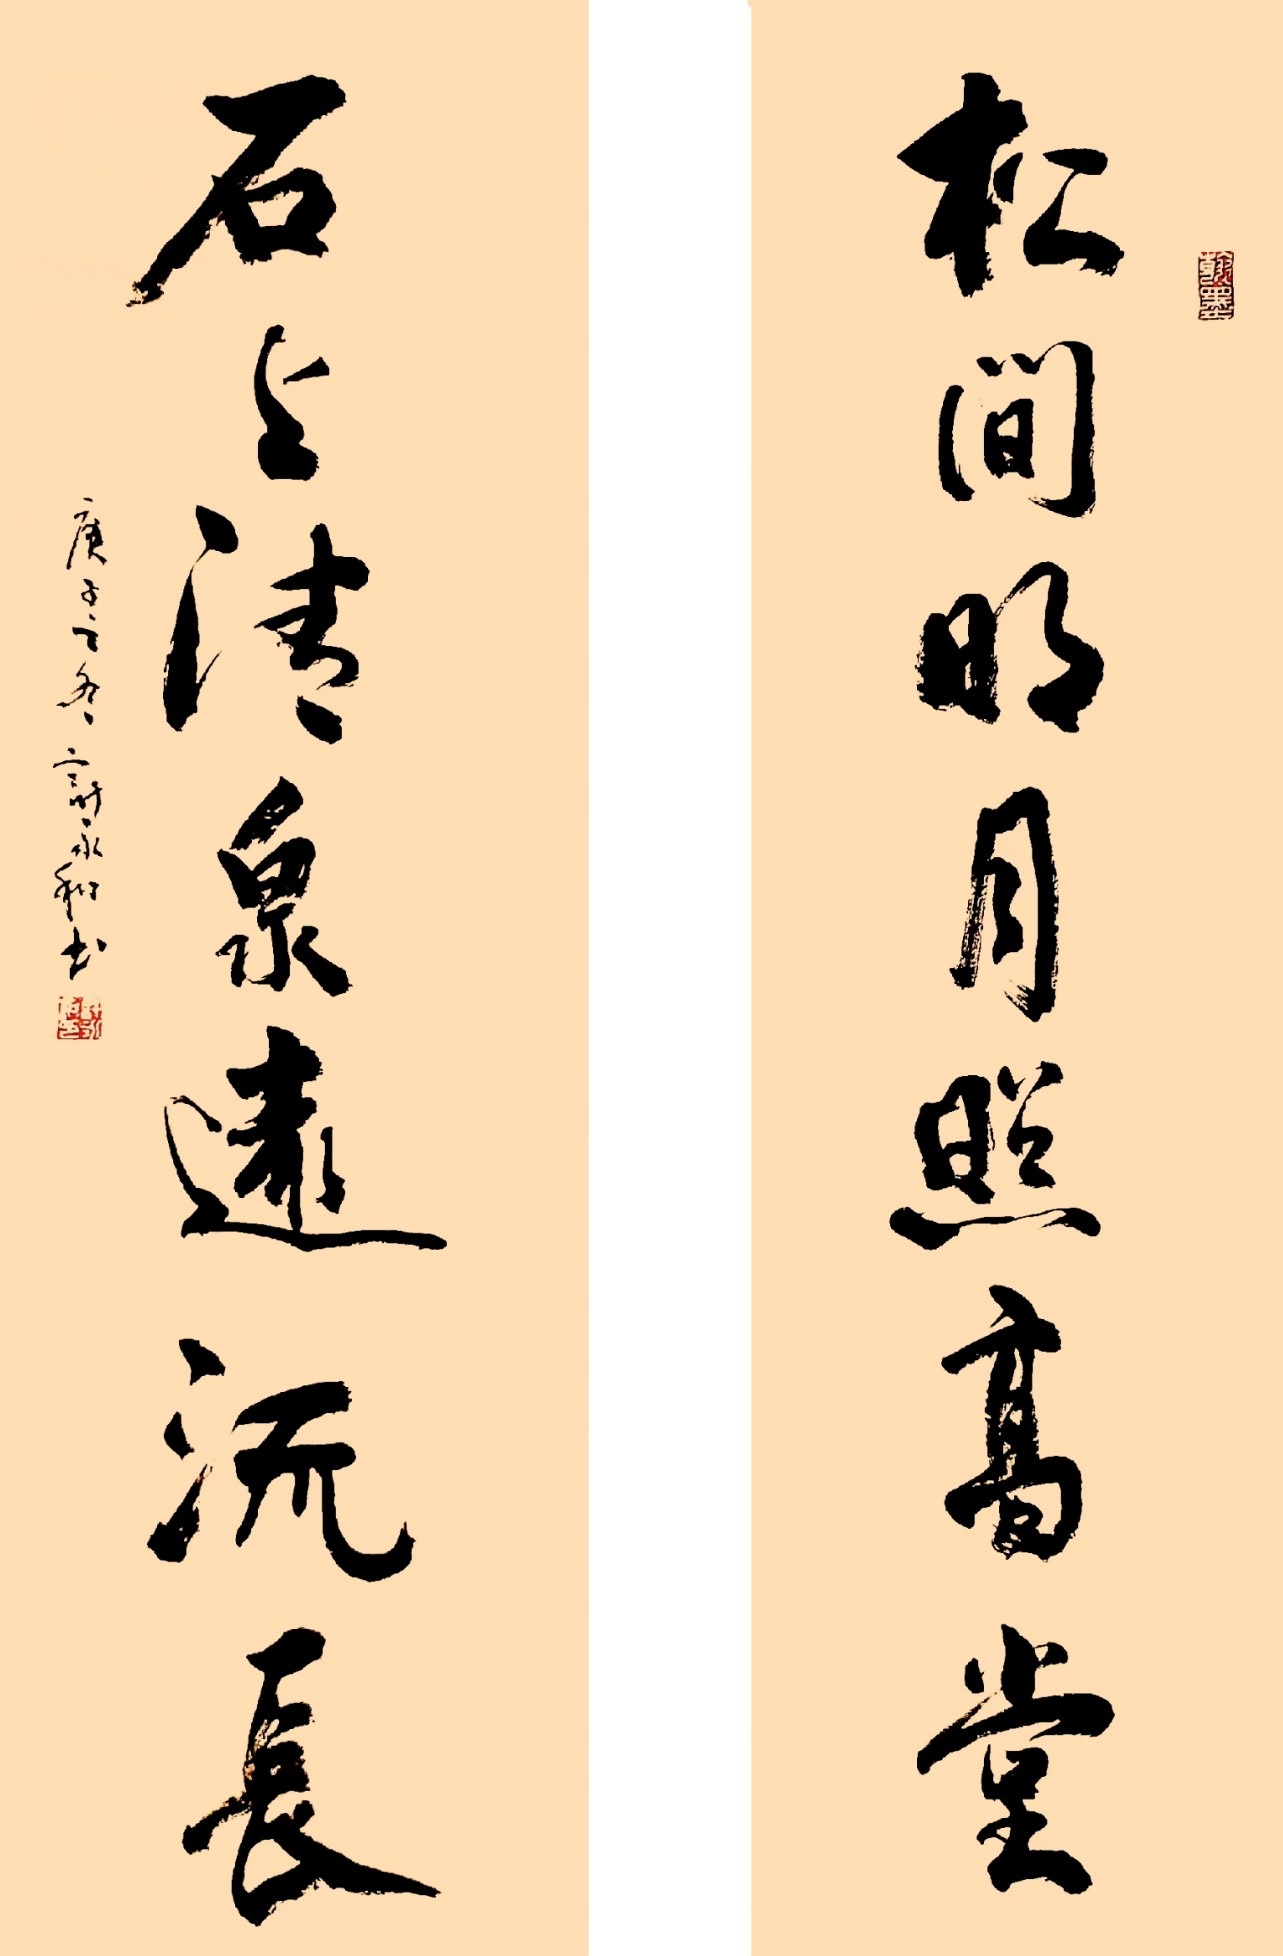 松间明月照高堂
石上清泉远流長
庚子之冬 許永和书
翰墨